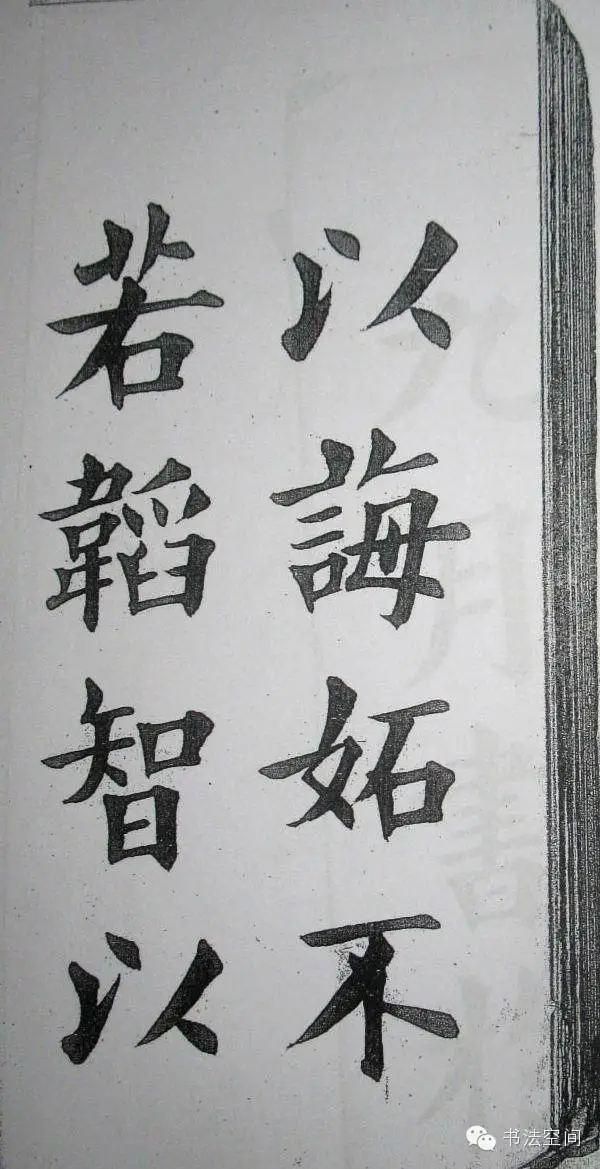 以誨妬不
若韜智以
九月書
书法空间